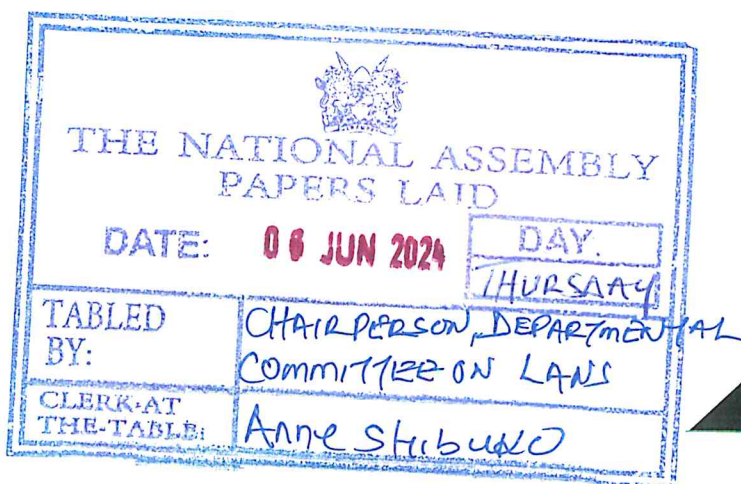 THE NATIONAL ASSEMBLY
PAPERS LAID
DATE: 06 JUN 2024 DAY.
THURSDAY
TABLED BY: CHAIRPERSON, DEPARTMENTAL
COMMITTEE ON LANS
CLERK-AT THE-TABLE: Anne Shibuko